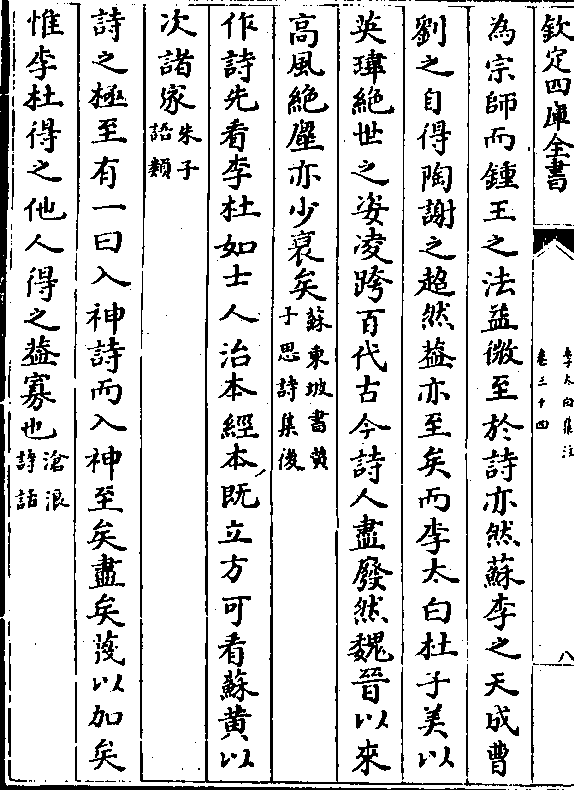 欽定四庫全書
李太白集注
卷三十四
八
為宗師而鍾王之法益微至於詩亦然蘇李之天成曹
劉之自得陶謝之超然葢亦至矣而李太白杜子美以
英瑋絶世之姿凌跨百代古今詩人盡廢然魏晉以來
高風絶塵亦少衰矣蘇東坡書黄子思詩集後
作詩先看李杜如士人治本經本既立方可看蘇黄以
次諸家朱子語類
詩之極至有一曰入神詩而入神至矣盡矣蔑以加矣
惟李杜得之他人得之葢寡也滄浪詩話